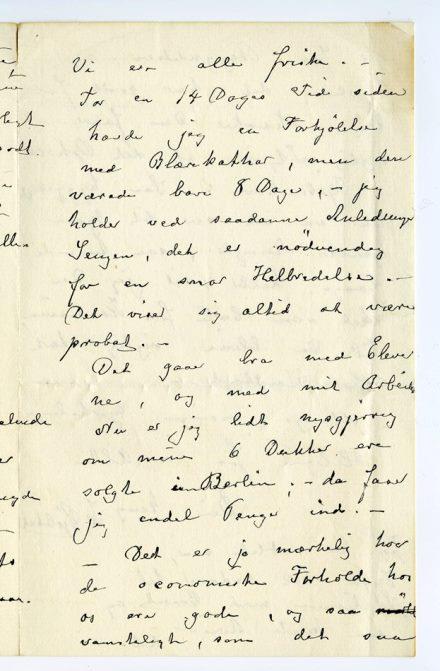 Vi er alle friske. –
For en 14 Dages Tid siden
havde jeg en Forkjølelse
med Blærekathar, men den
varede bare 8 Dage, – jeg
holder ved saadanne Anledninger
Sengen, det er nødvendig
for en snar Helbredelse. –
Det viser sig altid at være
probat. –
Det gaar bra med Eleve
ne, og med mit Arbeide
Nu er jeg lidt nysgjerrig
om mine 6 Dukker ere
solgte i Berlin, – da faar
jeg endel Penge ind. –
– Det er jo mærkelig hvor
de oeconomiske Forholde hos
os ere gode, og saa
vanskeligt, som det saa